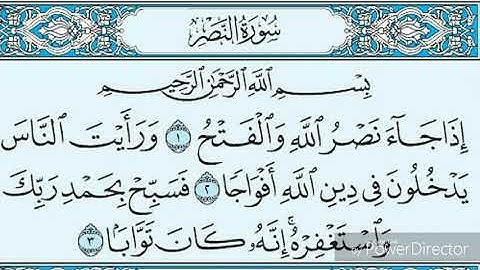 سُورَةُ النَّصْرِ
بِسْمِ اللَّهِ الرَّحْمَٰنِ الرَّحِيمِ
إِذَا جَآءَ نَصْرُ اللَّهِ وَالْفَتْحُ ١ وَرَأَيْتَ النَّاسَ
يَدْخُلُونَ فِي دِينِ اللَّهِ أَفْوَاجًا ٢ فَسَبِّحْ بِحَمْدِ رَبِّكَ
وَاسْتَغْفِرْهُ ۚ إِنَّهُۥ كَانَ تَوَّابًۢا ٣
PowerDirector